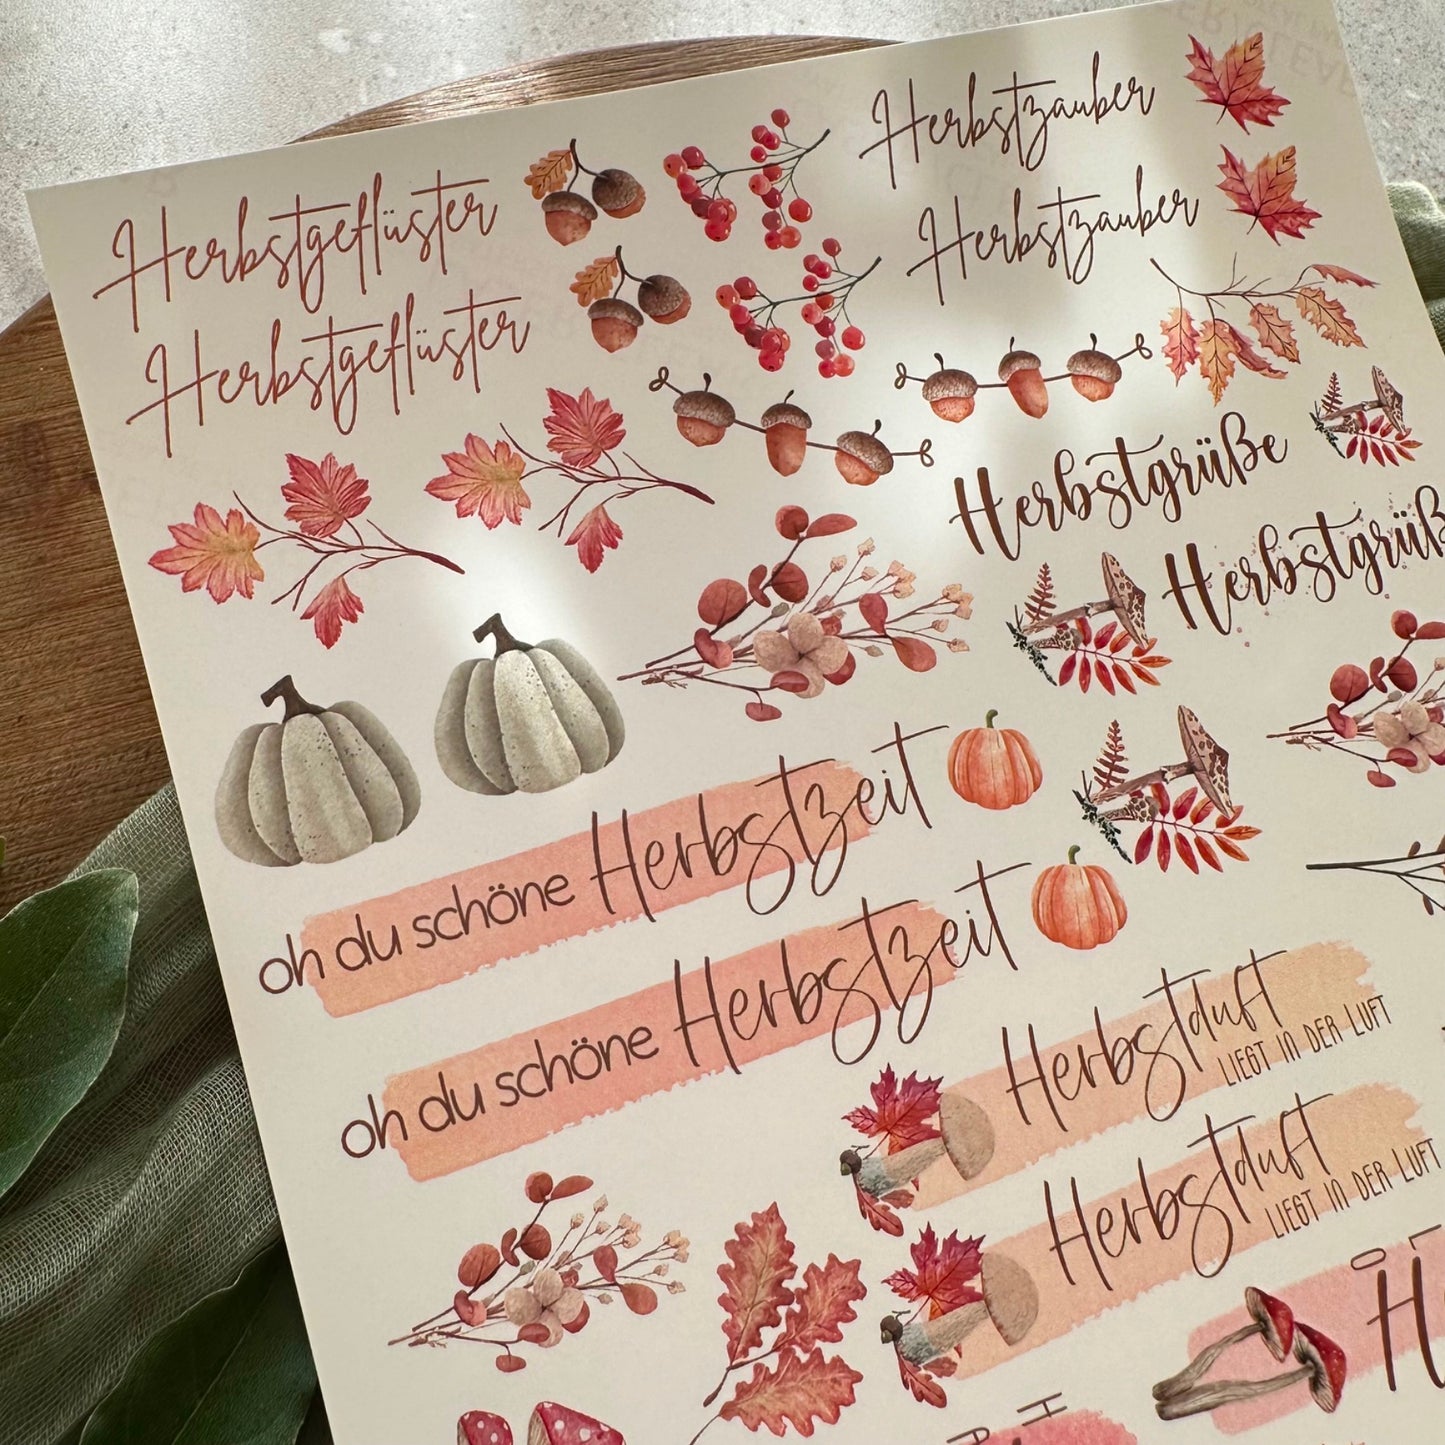 Herbstgeflüster
Herbstgeflüster
Herbstzauber
Herbstzauber
Herbstgrüße
Herbstgrüß
oh du schöne Herbstzeit
oh du schöne Herbstzeit
Herbstduft
LIEGT IN DER LUFT
Herbstduft
LIEGT IN DER LUFT